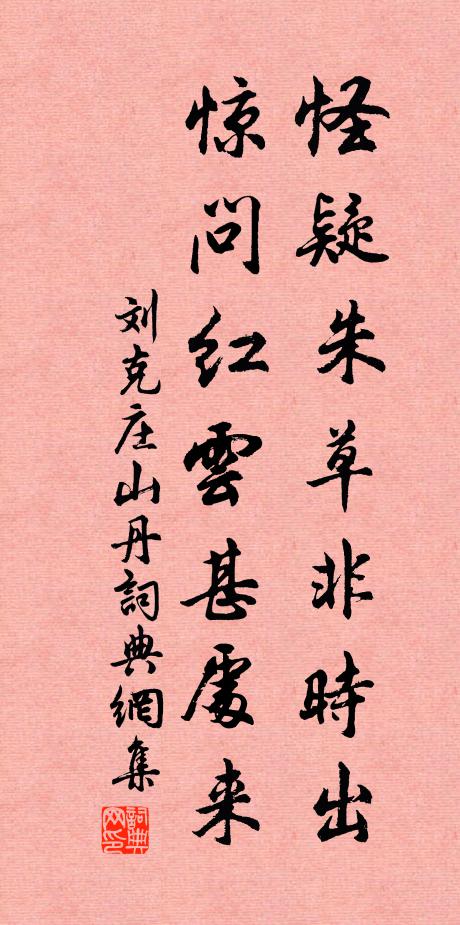 怪疑朱草非時出
惊问红雲甚處来
刘克庄山丹詞典網集
詞典网印